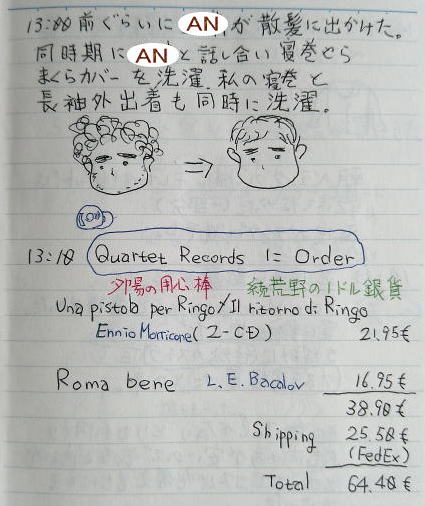 13:00 前ぐらいに AN が 散髪に出かけた。
同時期に AN と話し合い 寝巻やら
まくらカバーを洗濯. 私の寝巻と
長袖外出着も同時に洗濯。
⇒
13:10 Quartet Records に Order
夕陽の用心棒 続荒野の1ドル銀貨
Una pistola per Ringo/Il ritorno di Ringo
Ennio Morricone (2-CD) 21.95€
Roma bene L.E. Bacalov 16.95€
38.90€
Shipping 25.50€
(FedEx)
Total 64.40€